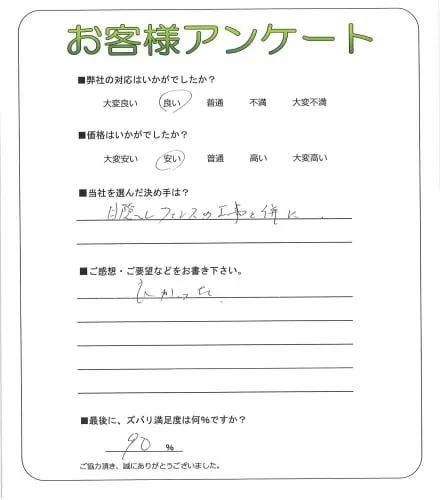 お客様アンケート
■弊社の対応はいかがでしたか?
大変良い 良い 普通 不満 大変不満
■価格はいかがでしたか?
大変安い 安い 普通 高い 大変高い
■当社を選んだ決め手は?
目隠しフェンスの工事と併に
■ご感想・ご要望などをお書き下さい。
よかった。
■最後に、ズバリ満足度は何%ですか?
90 %
ご協力頂き、誠にありがとうございました。